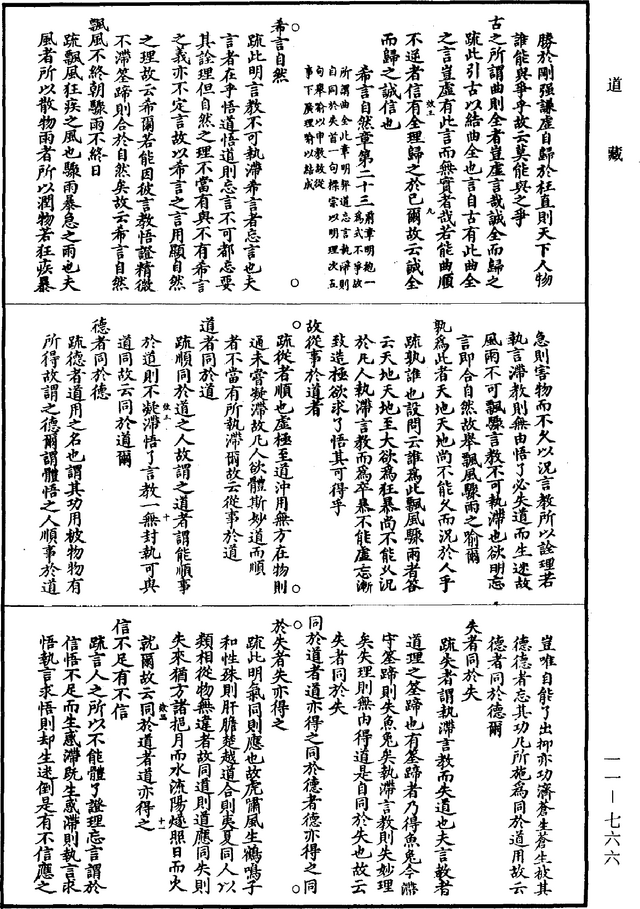 道藏
勝於剛強謙虛自歸於柱直則天下人物
誰能與爭乎故云莫能與之爭
古之所謂曲則全者豈虛言哉誠全而歸之
疏此引古以結曲全也言自古有此曲全
之言豈虛有此言而無實者哉若能曲順
不逆者信有全理歸之於己爾故云誠全
而歸之誠信也
希言自然章第二十三
前章明抱一爲式不爭故
所謂曲全此章明弊道忘言執滯則
自同於失首一句標宗以明理次五
句舉喻以申教故從
事下廣理喻以結成
希言自然
疏此明言教不可執滯希言者忘言也夫
言者在乎悟道悟道則忘言不可都忘要
其詮理但自然之理不當有與不有希言
之義亦不定言故以希言之言用顯自然
之理故云希爾若能因彼言教悟證精微
不滯筌蹄則合於自然矣故云希言自然
飄風不終朝驟雨不終日
疏飄風狂疾之風也驟雨暴急之雨也夫
風者所以散物雨者所以潤物若狂疾暴
急則害物而不久以況言教所以詮理若
執言滯教則無由悟了必失道而生迷故
風雨不可飄驟言教不可執滯也欲明忘
言即合自然故舉飄風驟雨之喻爾
孰爲此者天地天地尚不能久而況於人乎
疏孰誰也設問云誰爲此飄風驟雨者答
云天地天地至大欲爲狂暴尚不能久況
於凡人執滯言教而爲卒暴不能虛忘漸
致造極欲求了悟其可得乎
故從事於道者
疏從者順也虛極至道沖用無方在物則
通未嘗凝滯故凡人欲體斯妙道而順
者不當有所執滯爾故云從事於道
道者同於道
疏順同於道之人故謂之道者謂能順事
於道則不凝滯悟了言教一無封執可與
道同故云同於道爾
德者同於德
疏德者道用之名也謂其功用被物物有
所得故謂之德爾謂體悟之人順事於道
豈唯自能了出抑亦功濟蒼生蒼生被其
德德者忘其功凡所施爲同於道用故云
德者同於德爾
失者同於失
疏失者謂執滯言教而失道也夫言教者
道理之筌蹄也有筌蹄者乃得魚兔今滯
守筌蹄則失魚兔矣執滯言教則失妙理
矣失理則無由得道是自同於失也故云
失者同於失
同於道者道亦得之同於德者德亦得之同
於失者失亦得之
疏此明氣同則應也故虎嘯風生鶴鳴子
和性殊則肝膽楚越道合則夷夏同人以
類相從物無違者故同道則道應同失則
失來猶方諸挹月而水流陽燧照日而火
就爾故云同於道者道亦得之
信不足有不信
疏言人之所以不能體了證理忘言謂於
信悟不足而生惑滯既生惑滯則執言求
悟執言求悟則却生迷倒是有不信應之
一一—七六六